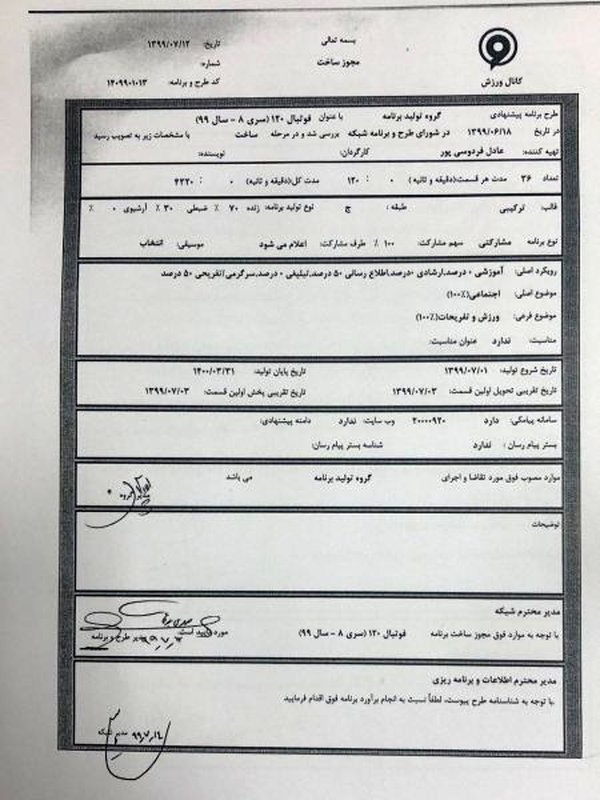 بسمه تعالی
مجوز ساخت
تاریخ: ۱۳۹۹/۰۷/۱۲
شماره:
کد طرح و برنامه: ۱۴۰۹۹۰۱۰۱۳
کانال ورزش
طرح برنامه پیشنهادی گروه تولید برنامه با عنوان فوتبال ۱۲۰ (سری ۸ - سال ۹۹)
در تاریخ ۱۳۹۹/۰۶/۱۸ در شورای طرح و برنامه شبکه بررسی شد و در مرحله ساخت با مشخصات زیر به تصویب رسید
تهیه کننده: عادل فردوسی پور کارگردان: نویسنده:
تعداد ۳۶ مدت هر قسمت:(دقیقه و ثانیه) ۰ : ۱۲۰ مدت کل:(دقیقه و ثانیه) ۰ : ۴۳۲۰
قالب: ترکیبی طبقه: ج نوع تولید برنامه: زنده ۷۰ % ضبطی ۳۰ % آرشیوی ۰ %
نوع برنامه مشارکتی سهم مشارکت: ۱۰۰ % طرف مشارکت: اعلام می شود موسیقی: انتخاب
رویکرد اصلی: آموزشی ۰ درصد,ارشادی ۰درصد,اطلاع رسانی ۵۰ درصد,تبلیغی ۰ درصد,سرگرمی/تفریحی ۵۰ درصد
موضوع اصلی: اجتماعی(۱۰۰٪)
موضوع فرعی: ورزش و تفریحات(۱۰۰٪)
مناسبت: ندارد عنوان مناسبت:
تاریخ شروع تولید: ۱۳۹۹/۰۷/۰۱ تاریخ پایان تولید: ۱۴۰۰/۰۳/۳۱
تاریخ تقریبی تحویل اولین قسمت: ۱۳۹۹/۰۷/۰۳ تاریخ تقریبی پخش اولین قسمت: ۱۳۹۹/۰۷/۰۳
سامانه پیامکی: دارد ۲۰۰۰۰۹۲۰ وب سایت: ندارد دامنه پیشنهادی:
بستر پیام رسان: ندارد شناسه بستر پیام رسان:
موارد مصوب فوق مورد تقاضا و اجرای گروه تولید برنامه می باشد
مدیر گروه
توضیحات
مدیر محترم شبکه
با توجه به موارد فوق مجوز ساخت برنامه فوتبال ۱۲۰ (سری ۸ - سال ۹۹) مورد تایید است
مدیر طرح و برنامه
مدیر محترم اطلاعات و برنامه ریزی
با توجه به شناسنامه طرح پیوست، لطفاً نسبت به انجام برآورد برنامه فوق اقدام فرمایید.
مدیر شبکه